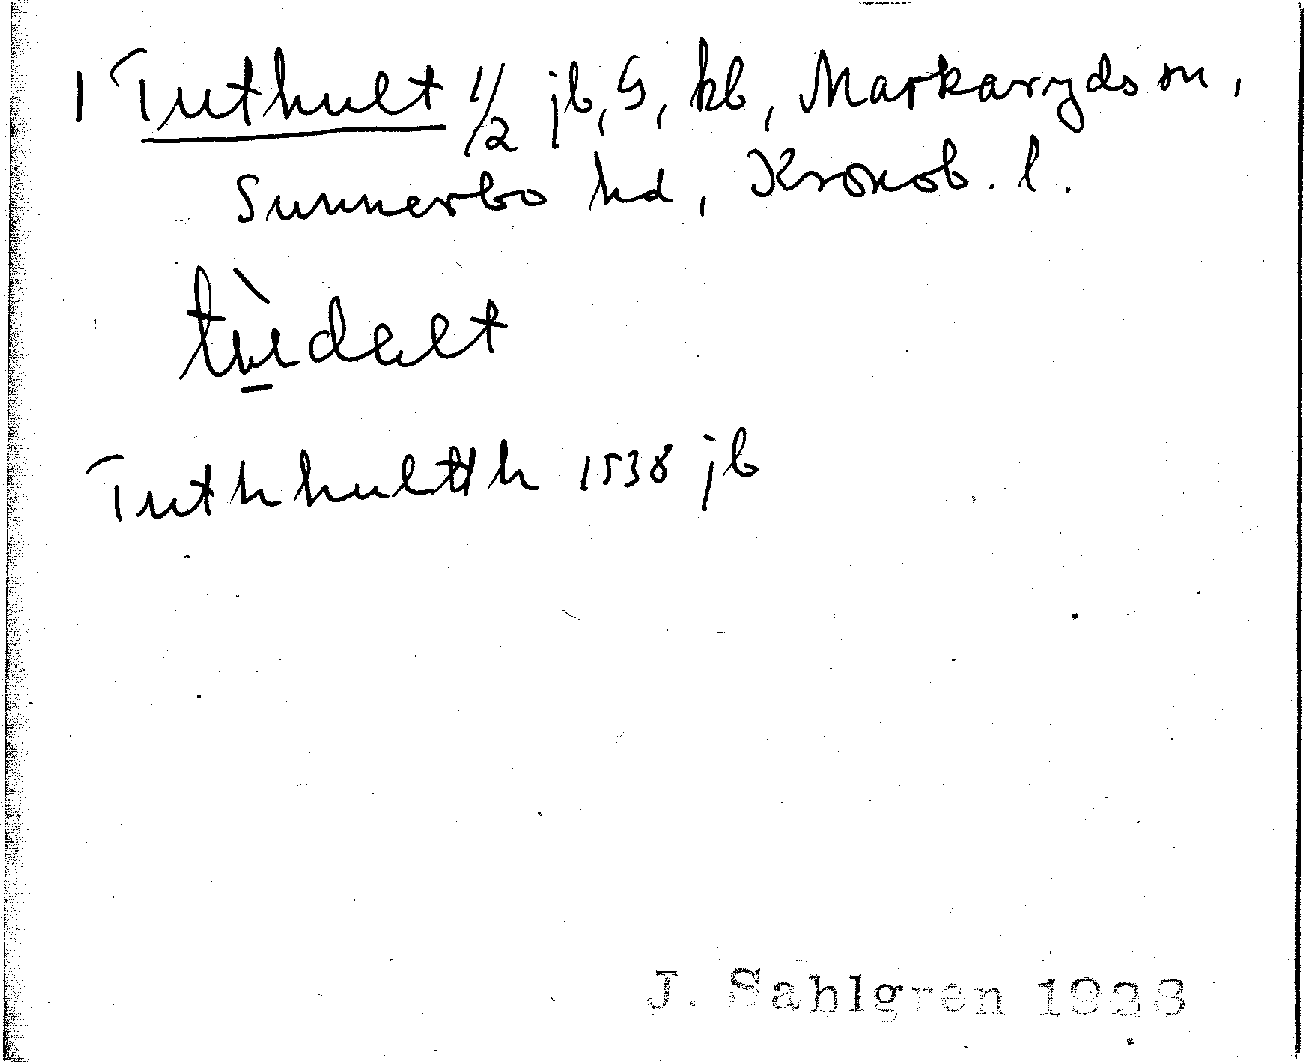 1 Tuthult 1/2 jb, G, kb, Markaryds sn,
Sunnerbo hd, Kronob. l.
tùdalt
Tuthhultth 1538 jb
J. Sahlgren 1923